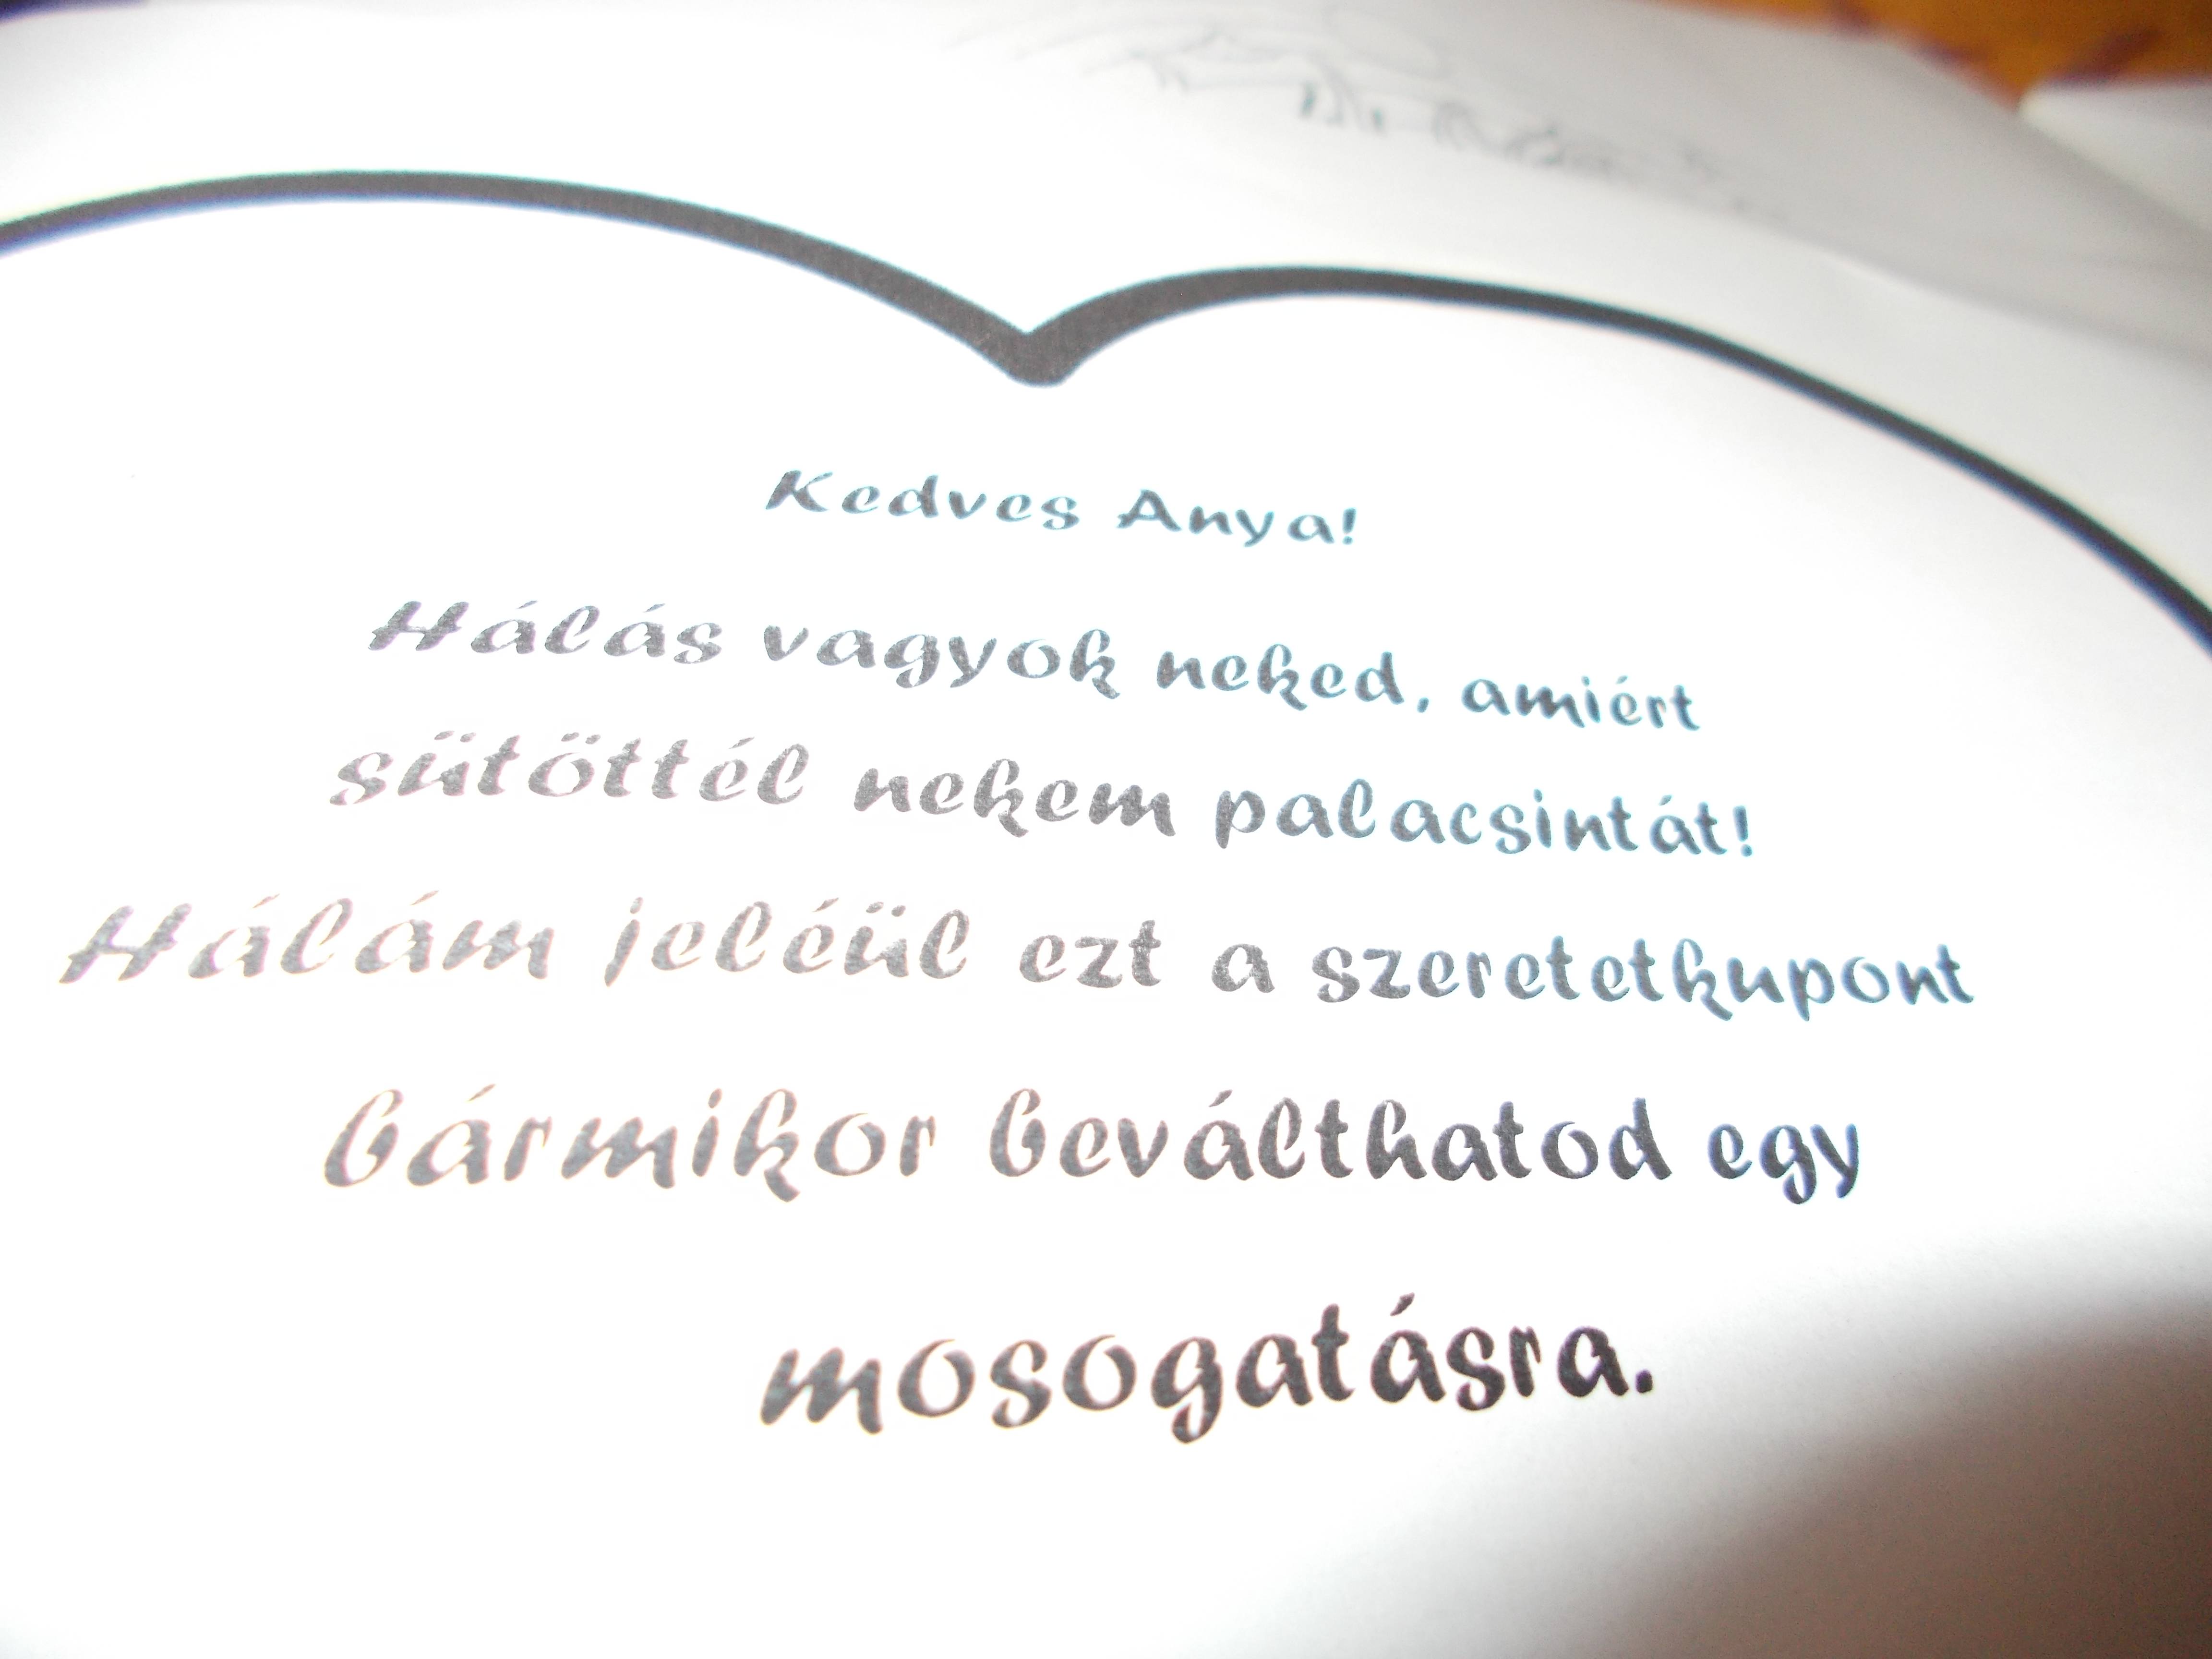 Kedves Anya!
Hálás vagyok neked, amiért
sütöttél nekem palacsintát!
Hálám jeléül ezt a szeretetkupont
bármikor beválthatod egy
mosogatásra.